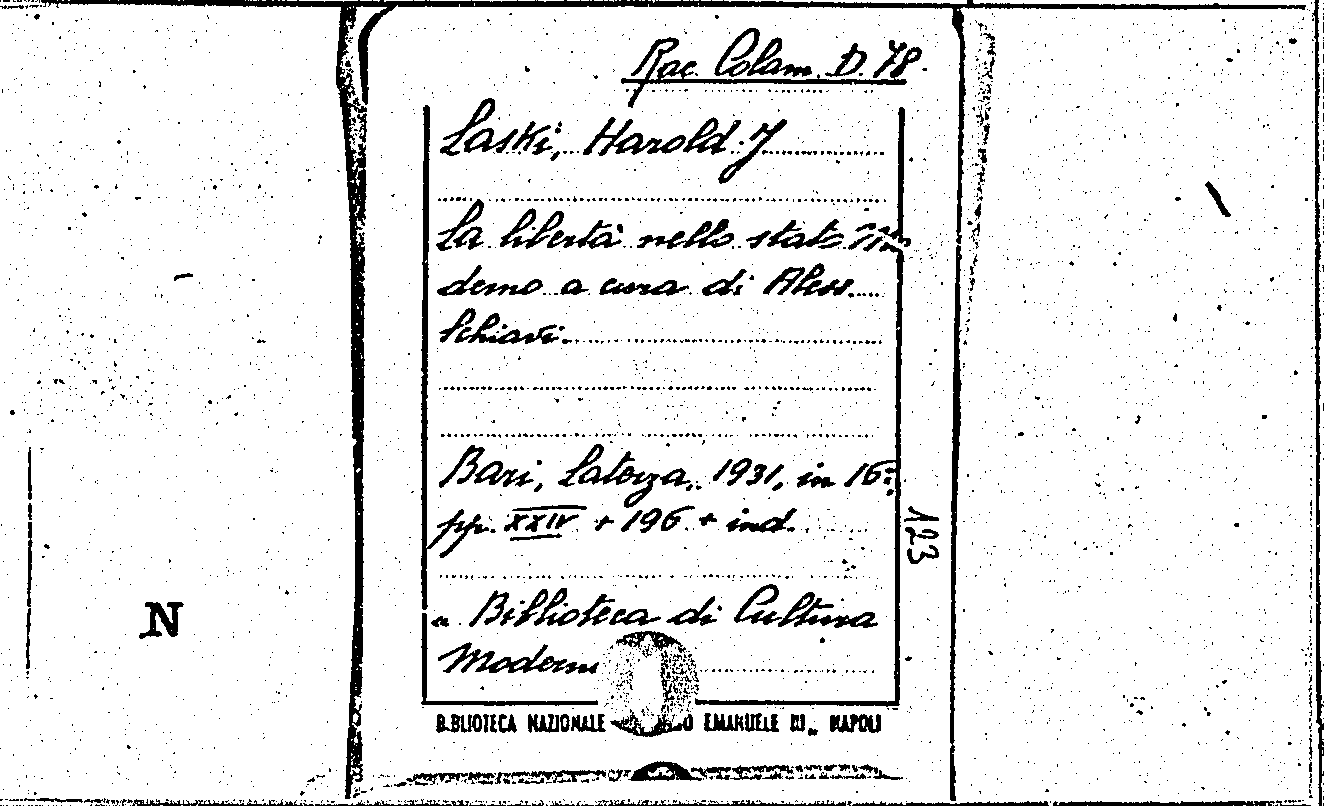 Rac. Colam. D. 78.
Laski, Harold J
La libertà nello stato mo
derno a cura di Aless.
Schiavi.
Bari, Laterza, 1931, in 16°,
pp. XXIV + 196 + ind.
123
" Biblioteca di Cultura
N
Moderna
BIBLIOTECA NAZIONALE EMANUELE III„ NAPOLI